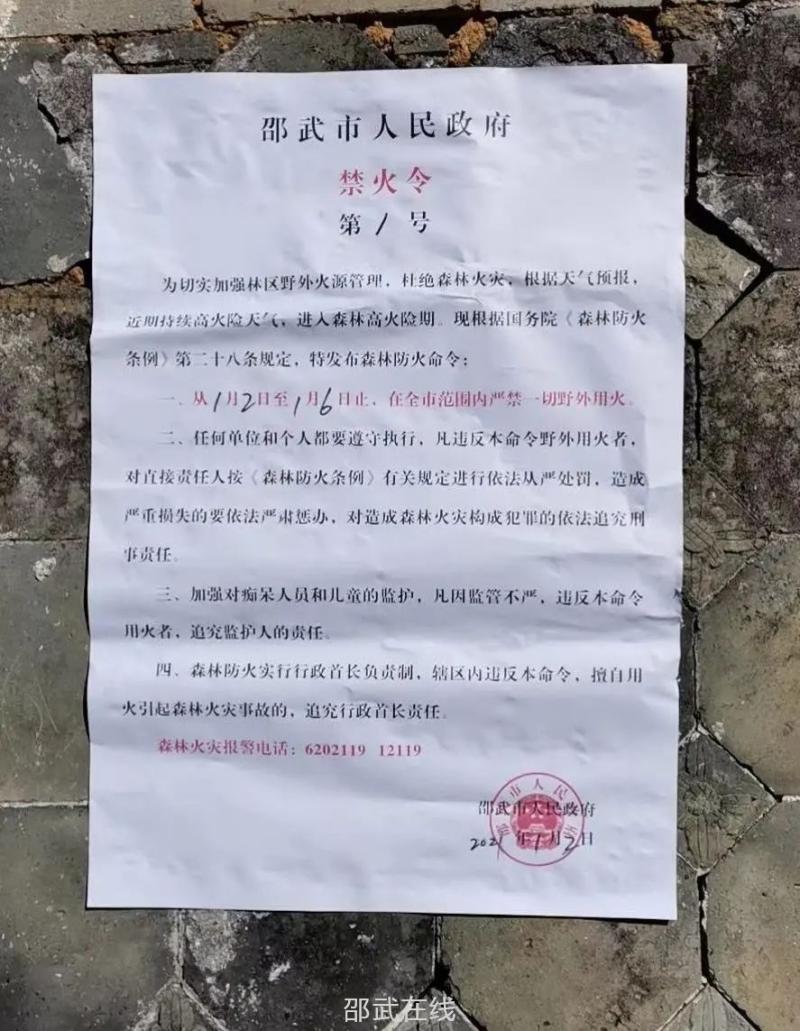 邵武市人民政府
禁火令
第1号
为切实加强林区野外火源管理，杜绝森林火灾，根据天气预报，
近期持续高火险天气，进入森林高火险期。现根据国务院《森林防火
条例》第二十八条规定，特发布森林防火命令：
一、从1月2日至1月6日止，在全市范围内严禁一切野外用火。
二、任何单位和个人都要遵守执行，凡违反本命令野外用火者，
对直接责任人按《森林防火条例》有关规定进行依法从严处罚，造成
严重损失的要依法严肃惩办，对造成森林火灾构成犯罪的依法追究刑
事责任。
三、加强对痴呆人员和儿童的监护，凡因监管不严，违反本命令
用火者，追究监护人的责任。
四、森林防火实行行政首长负责制，辖区内违反本命令，擅自用
火引起森林火灾事故的，追究行政首长责任。
森林火灾报警电话：6202119 12119
邵武市人民政府
2021年1月2日
邵武在线